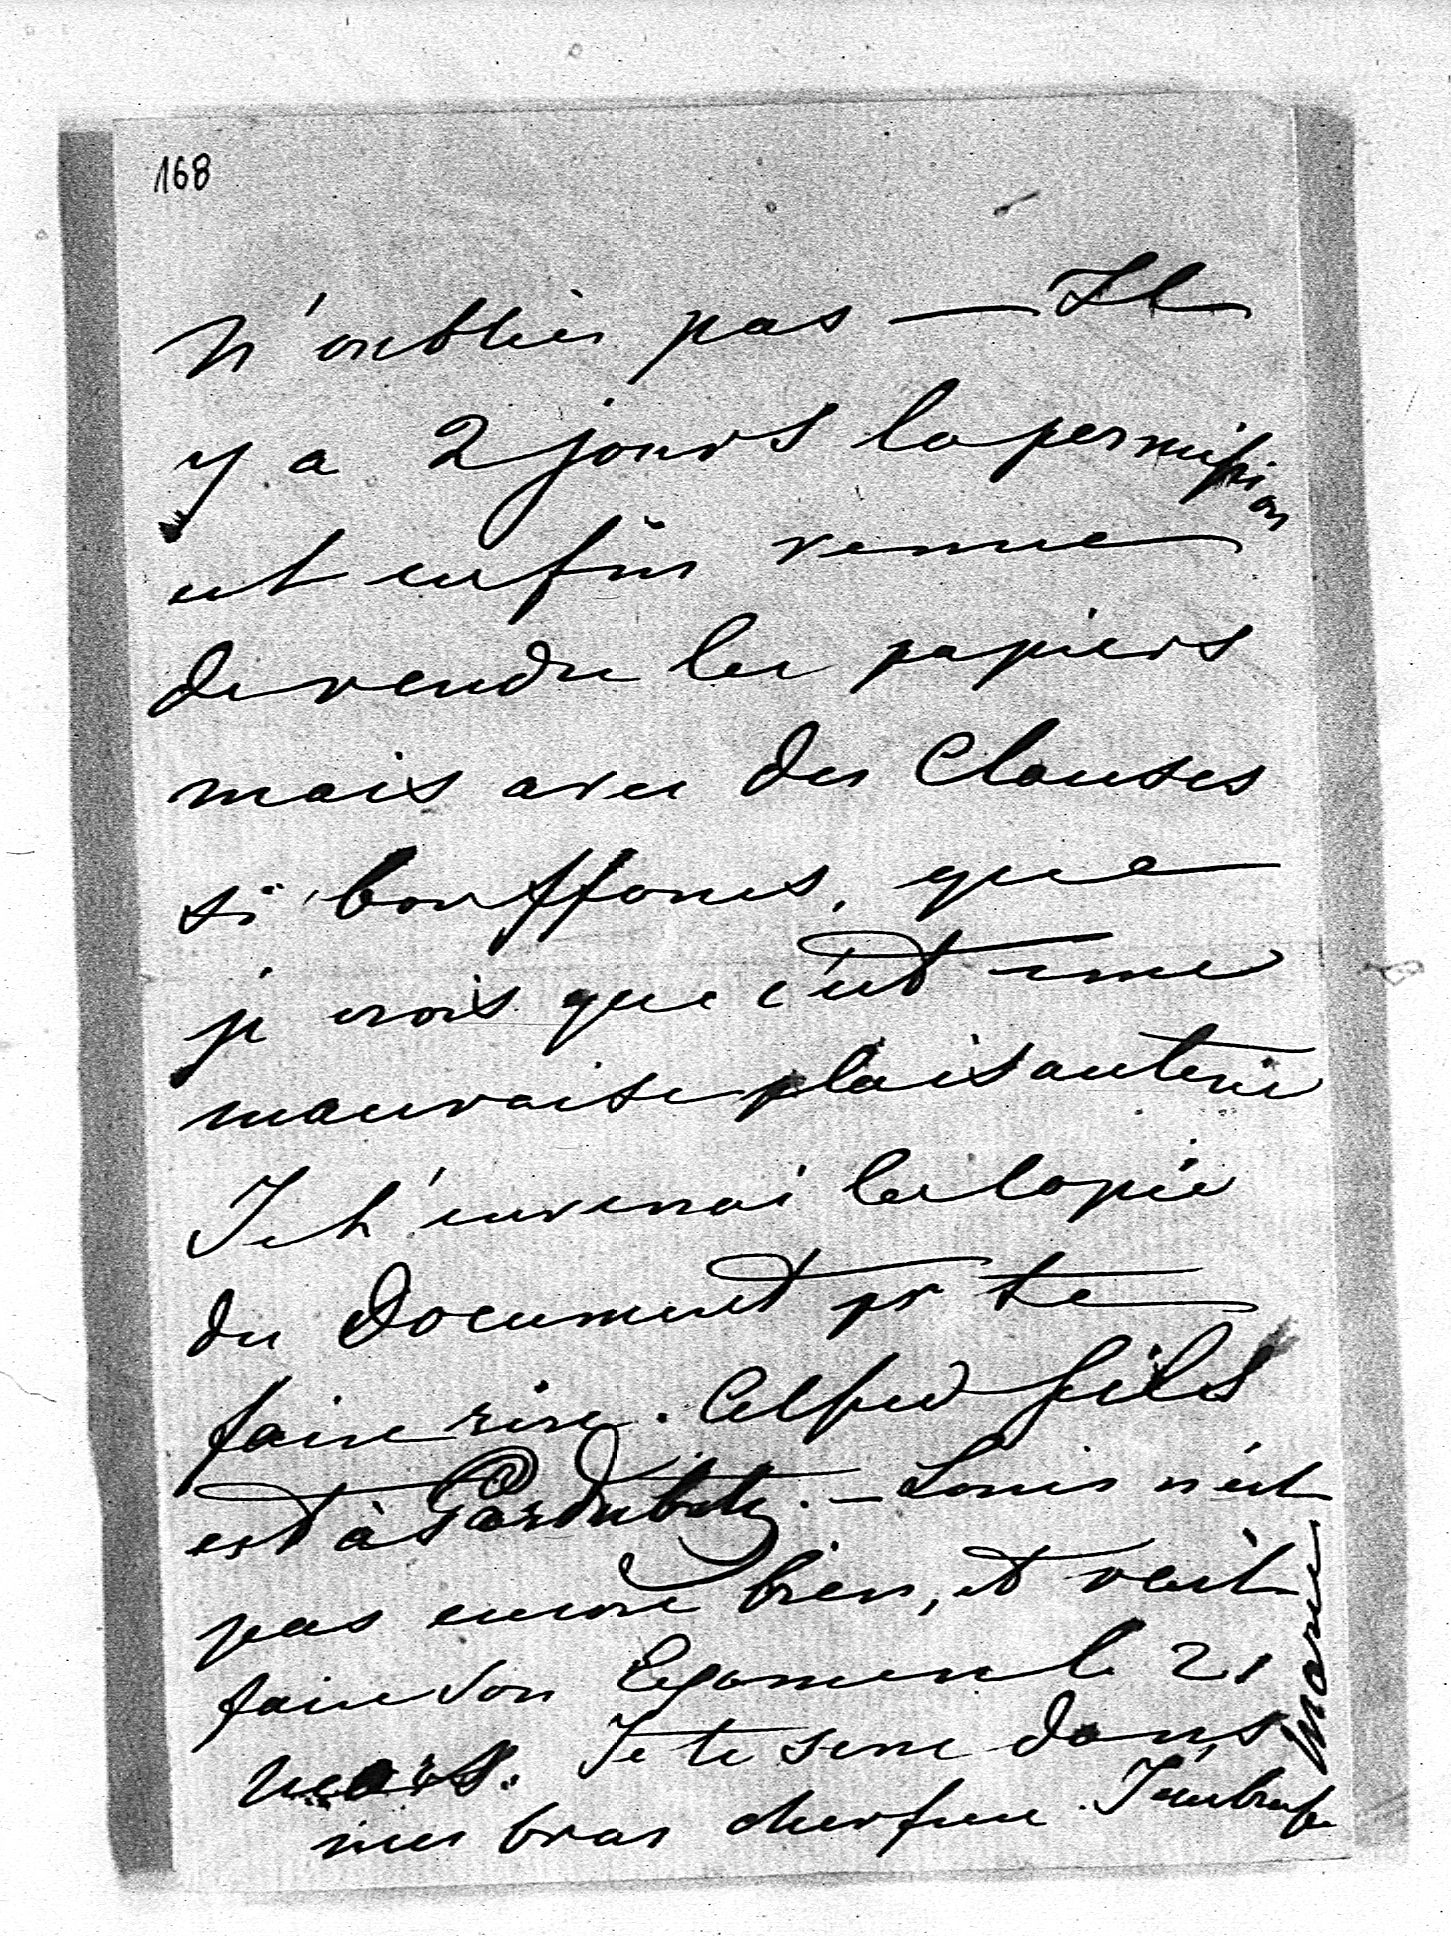 168
N'oublies pas — Il
y a 2 jours la permission
est enfin venue
de rendre les papiers
mais avec des Clauses
si bouffones, que
je crois que c'est une
mauvaise plaisanterie
Je t'enverrai la copie
du Document pr te
faire rire. Alfred fils
est à Pardubitz. — Louis n'est
pas encore bien, et veut
faire son Examen le 21
mars. Je te serre dans
mes bras cher frère. J'embrasse
Marie